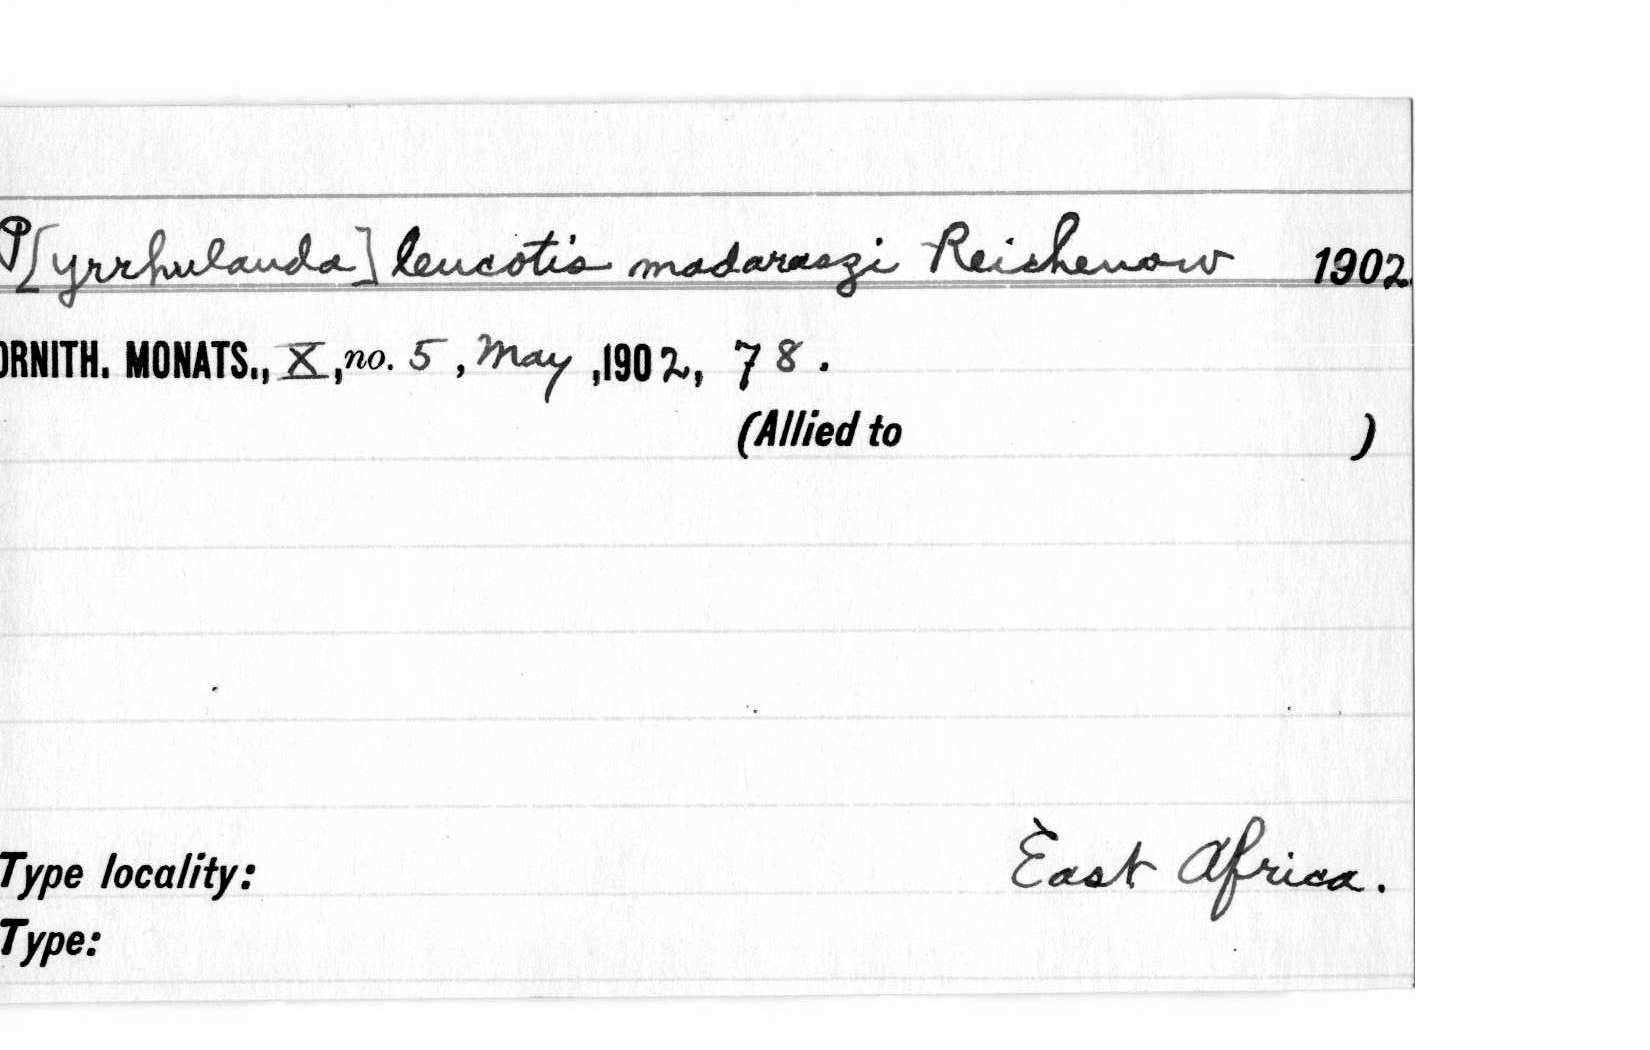 P[yrrhulauda] leucotis madaraszi Reichenow 1902.
ORNITH. MONATS., X, no. 5, May, 1902, 78.
(Allied to )
Type locality: East Africa.
Type: